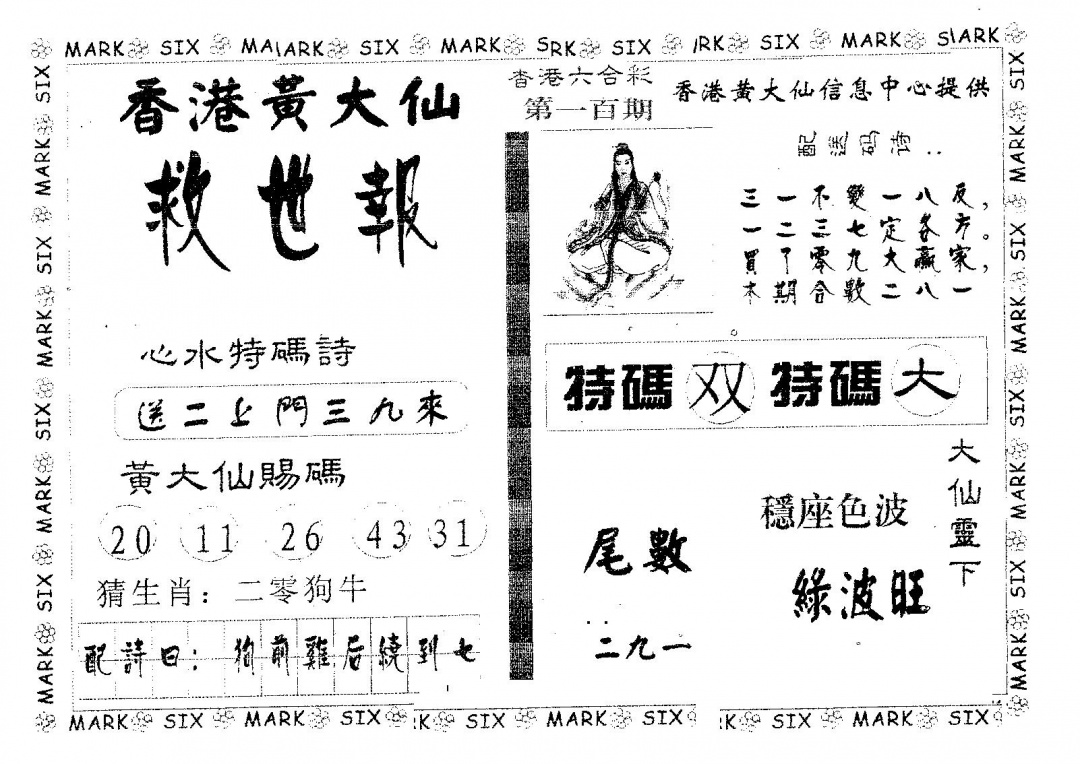 MARK SIX MARK SIX MARK SIX MARK SIX MARK SIX
香港黃大仙
救世報
心水特碼詩
送二上門三九來
黃大仙賜碼
20 11 26 43 31
猜生肖：二零狗牛
配詩曰：狗前雞后繞到七
香港六合彩
第一百期
香港黄大仙信息中心提供
配送码诗：
三一不變一八反，
一二三七定各方。
買了零九大贏家，
本期合數二八一
特碼 双 特碼 大
尾數
二九一
穩座色波
綠波旺
大仙靈下
MARK SIX MARK SIX MARK SIX MARK SIX MARK SIX